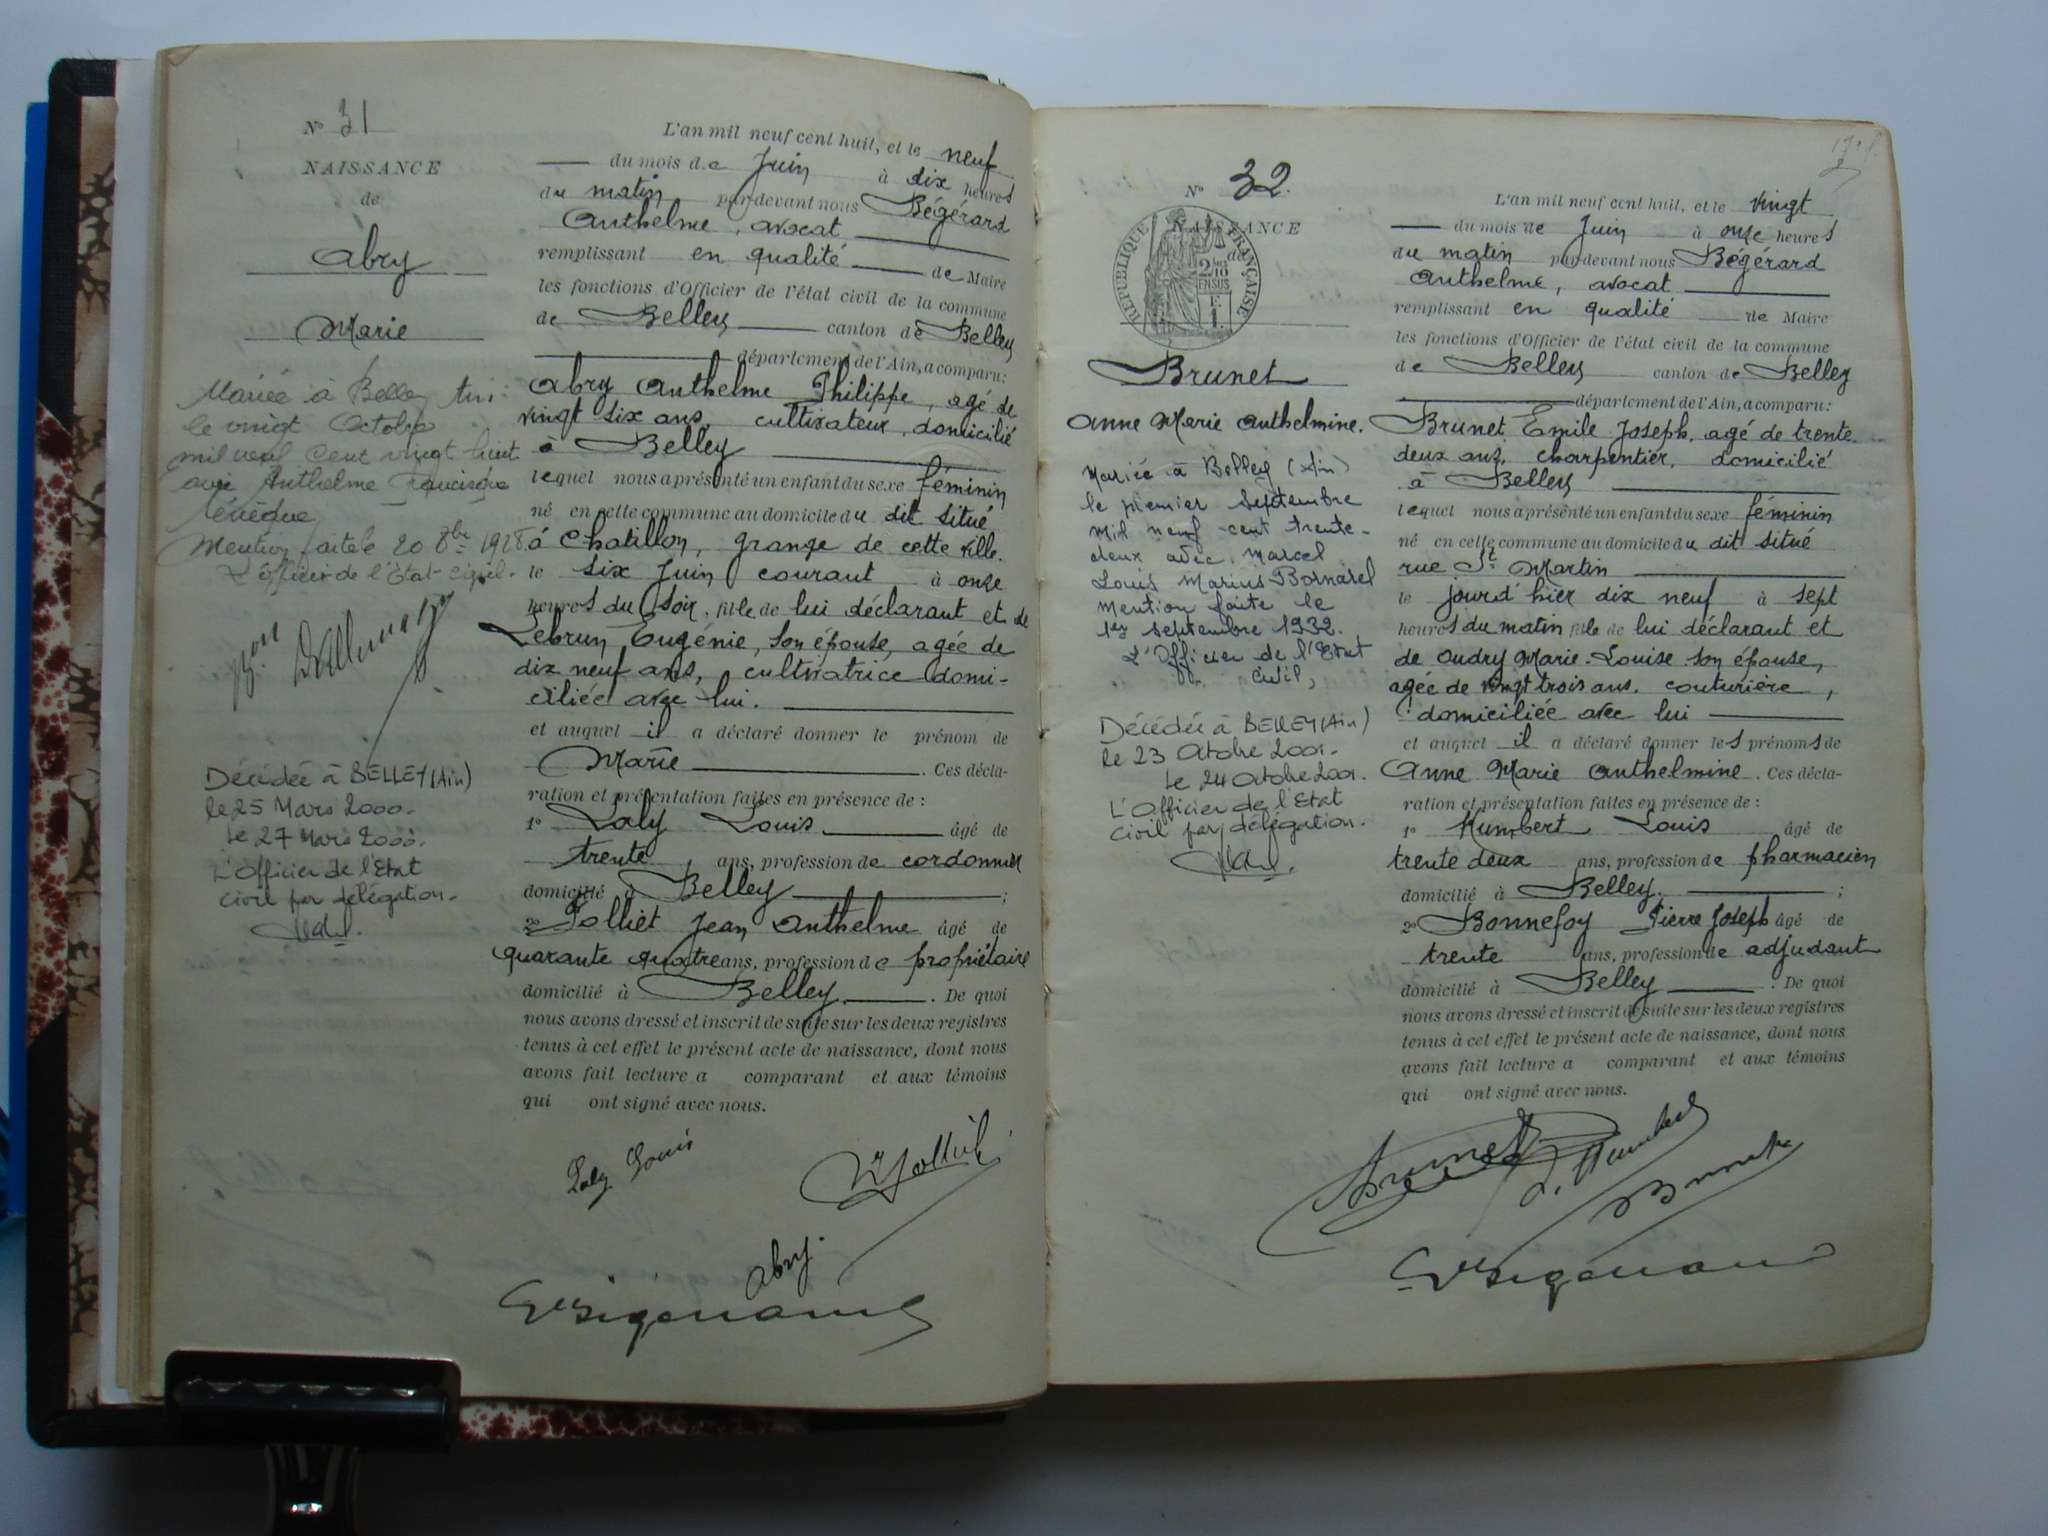 N° 31
NAISSANCE
de
Abry
Marie
Mariée à Belley Ain
le vingt Octobre
mil neuf cent vingt huit
avec Anthelme Francisque
Mention faite le 20 8bre 1928
L'officier de l'Etat civil.
Décédée à BELLEY (Ain)
le 25 Mars 2000.
Le 27 Mars 2000.
L'Officier de l'Etat
civil par délégation.
L'an mil neuf cent huit, et le neuf
du mois de Juin à dix heures
du matin par-devant nous Bégérard
Anthelme, avocat
remplissant en qualité de Maire
les fonctions d'Officier de l'état civil de la commune
de Belley canton de Belley
département de l'Ain, a comparu:
Abry Anthelme Philippe, agé de
vingt six ans, cultivateur, domicilié
à Belley
lequel nous a présenté un enfant du sexe féminin
né en cette commune au domicile du dit situé
à Chatillon, grange de cette ville.
le six Juin courant à onze
heures du soir, fille de lui déclarant et de
Lebrun Eugénie, son épouse, agée de
dix neuf ans, cultivatrice domi-
ciliée avec lui.
et auquel il a déclaré donner le prénom de
Marie. Ces décla-
ration et présentation faites en présence de :
1° Laly Louis âgé de
trente, ans, profession de cordonnier
domicilié à Belley ;
2° Jean Anthelme âgé de
quarante quatre ans, profession de propriétaire
domicilié à Belley. De quoi
nous avons dressé et inscrit de suite sur les deux registres
tenus à cet effet le présent acte de naissance, dont nous
avons fait lecture a comparant et aux témoins
qui ont signé avec nous.
Laly Louis
Abry.
N° 32.
NAISSANCE
de
RÉPUBLIQUE FRANÇAISE
2 10
EN SUS
F.
1.
Brunet
Anne Marie Anthelmine.
Mariée à Belley (Ain)
le premier septembre
mil neuf cent trente-
deux avec Marcel
Louis Marius Bornarel
Mention faite le
1er septembre 1932.
L'Officier de l'Etat
civil,
Décédée à BELLEY (Ain)
le 23 Octobre 2001.
Le 24 Octobre 2001.
L'Officier de l'Etat
civil par délégation.
L'an mil neuf cent huit, et le vingt
du mois de Juin à onze heures
du matin par-devant nous Bégérard
Anthelme, avocat
remplissant en qualité de Maire
les fonctions d'Officier de l'état civil de la commune
de Belley canton de Belley
département de l'Ain, a comparu:
Brunet Emile Joseph, agé de trente
deux ans, charpentier, domicilié
à Belley
lequel nous a présenté un enfant du sexe féminin
né en cette commune au domicile du dit situé
rue St Martin
le jourd'hier dix neuf à sept
heures du matin fille de lui déclarant et
de Oudry Marie-Louise son épouse,
agée de vingt trois ans. couturière,
domiciliée avec lui
et auquel il a déclaré donner les prénoms de
Anne Marie Anthelmine. Ces décla-
ration et présentation faites en présence de :
1° Humbert Louis âgé de
trente deux ans, profession de pharmacien
domicilié à Belley. ;
2° Bonnefoy Pierre Joseph âgé de
trente ans, profession de adjudant
domicilié à Belley. De quoi
nous avons dressé et inscrit de suite sur les deux registres
tenus à cet effet le présent acte de naissance, dont nous
avons fait lecture a comparant et aux témoins
qui ont signé avec nous.
Brunet
L. Humbert